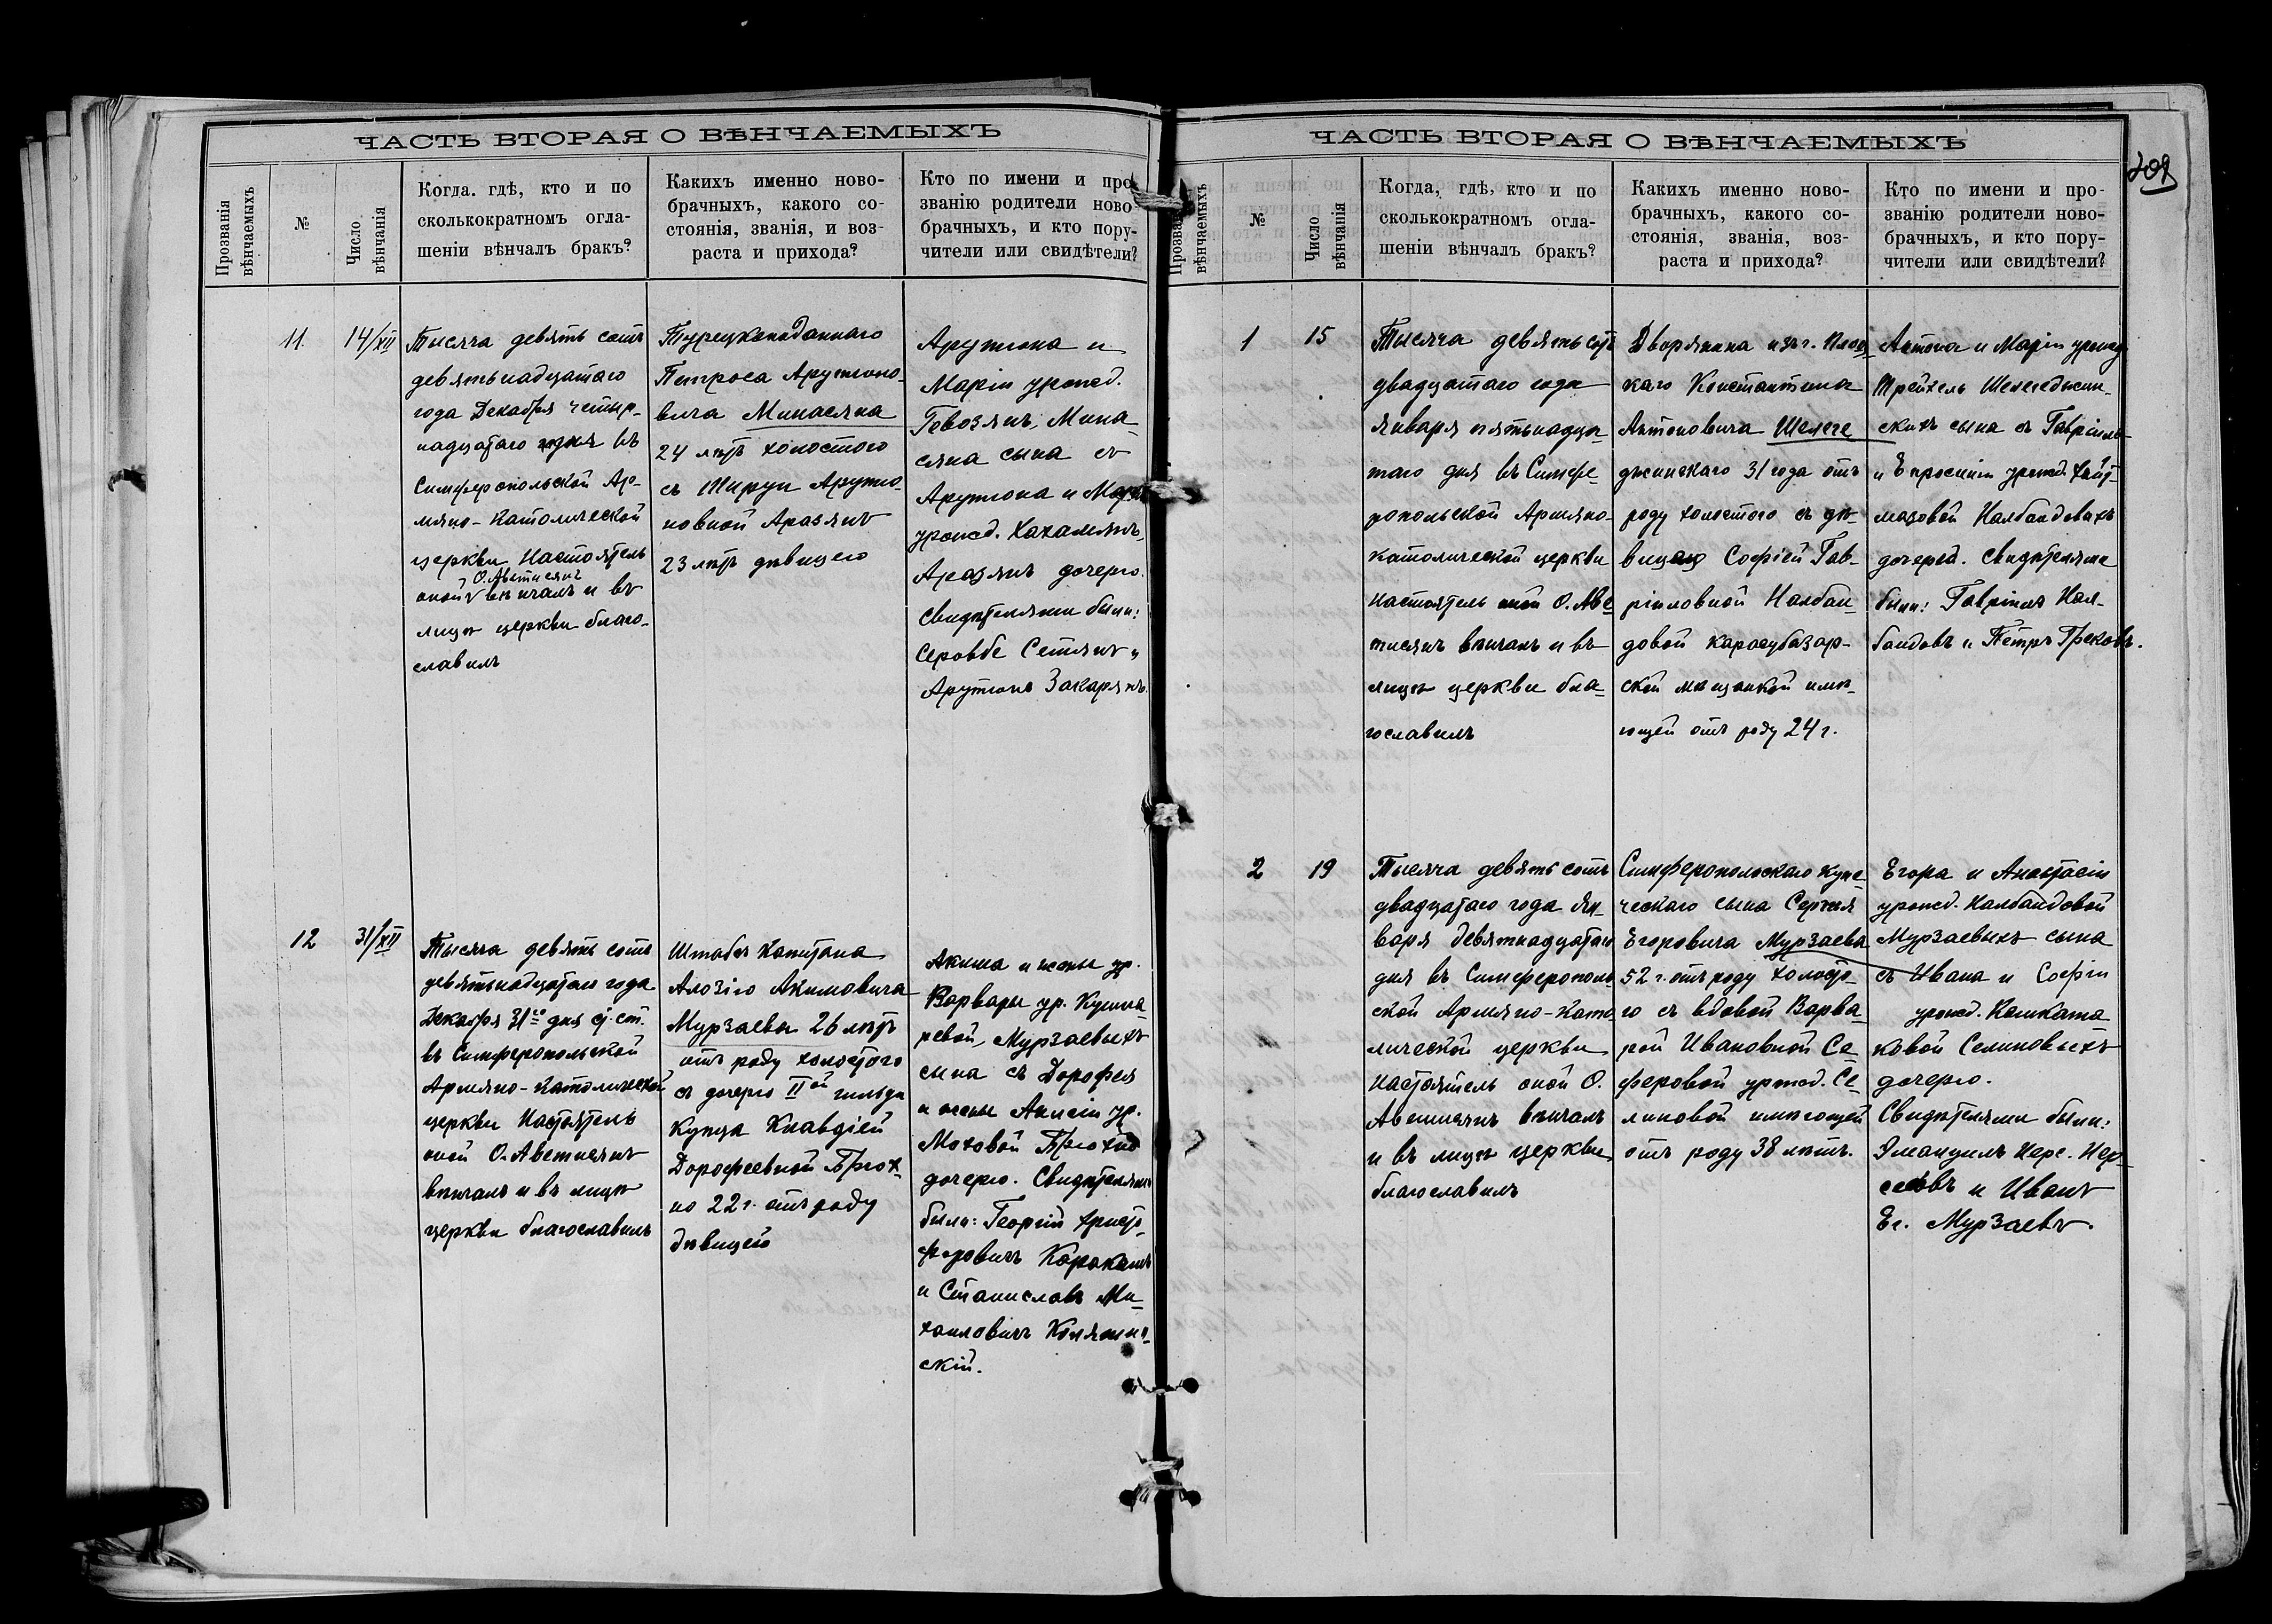 ЧАСТЬ ВТОРАЯ О ВѢНЧАЕМЫХЪ
Прозванія
вѣнчаемыхъ
№
Число
вѣнчанія
Когда. гдѣ, кто и по
сколькократномъ огла-
шеніи вѣнчалъ бракъ?
Какихъ именно ново-
брачныхъ, какого со-
стоянія, званія, и воз-
раста и прихода?
Кто по имени и про-
званію родители ново-
брачныхъ, и кто пору-
чители или свидѣтели?
11
14/XII
Тысяча девять сотъ
девятьнадцатаго
года Декабря четыр-
надцатаго дня въ
Симферопольской Ар-
мяно-Католической
церкви Настоятель
оной О. Аветисянъ вѣнчалъ и въ
лицѣ церкви благо-
славилъ
Турецкоподаннаго
Петроса Арутюно-
вича Минасяна
24 лѣтъ холостого
съ Шируи Арутю-
новной Аразянъ
23 лѣтъ дѣвицею
Арутюна и
Маріи урожд.
Гевозянъ, Мина-
сяна сына съ
Арутюна и
урожд. Хахамянъ,
Аразянъ дочерью.
Свидѣтелями были:
Серовбе Сетянъ и
Арутюнъ Закарянъ.
12
31/XII
Тысяча девять сотъ
девятьнадцатаго года
Декабря 31го дня с. ст.
въ Симферопольской
Армяно-Католической
церкви Настоятель
оной О. Аветисянъ
вѣнчалъ и въ лицѣ
церкви благославилъ
Штабсъ Капитана
Алозіго Акимовича
Мурзаева 26 лѣтъ
отъ роду холостого
съ дочерью IIой гильди
купца Клавдіей
Дорофеевной Трюх-
но 22 г. отъ роду
дѣвицею
Акима и жены ур.
Варвары ур. Кушна-
ревой, Мурзаевыхъ
сына съ Дорофея
и жены Анисіи ур.
Моховой Трюхно
дочерью. Свидѣтелями
были: Георгій Христо-
форовичъ Каракашъ
и Станиславъ Ми-
хаиловичъ
скій.
ЧАСТЬ ВТОРАЯ О ВѢНЧАЕМЫХЪ
209
Прозванія
вѣнчаемыхъ
№
Число
вѣнчанія
Когда, гдѣ, кто и по
сколькократномъ огла-
шеніи вѣнчалъ бракъ?
Какихъ именно ново-
брачныхъ, какого со-
стоянія, званія, воз-
раста и прихода?
Кто по имени и про-
званію родители ново-
брачныхъ, и кто пору-
чители или свидѣтели?
1
15
Тысяча девятьсотъ
двадцатаго года
Января пятьнадца-
таго дня въ Симфе-
ропольской Армяно-
католической церкви
Настоятель оной О. Аве-
тисянъ вѣнчалъ и въ
лицѣ церкви бла-
гославилъ
Дворянина изъ г. Плоц-
каго Константина
Антоновича Шелехе-
дъсинскаго 31 года отъ
роду холостого съ дѣ-
вицею Софіей Гав-
ріиловной Налбан-
довой Карасубазар-
ской мѣщанкой имѣ-
ющей отъ роду 24 г.
Антона и Маріи урожд.
Трейхель
скихъ сына съ Гавріила
и Ефросиніи урожд.
мазовой Налбандовыхъ
дочерей. Свидѣтелями
были: Гавріилъ Нал-
бандовъ и Петръ Грековъ.
2
19
Тысяча девять сотъ
двадцатаго года Ян-
варя девятнадцатаго
дня въ Симферополь-
ской Армяно-Като-
лической церкви
Настоятель оной О.
Аветисянъ вѣнчалъ
и въ лицѣ церкви
благославилъ
Симферопольскаго купе-
ческаго сына Сергея
Егоровича Мурзаева
52 г. отъ роду холосто-
го съ вдовой Варва-
рой Ивановной Се-
феровой урожд. Се-
линовой имѣющей
отъ роду 38 лѣтъ.
Егора и Анастасіи
урожд. Налбандовой
Мурзаевыхъ сына
съ Ивана и Софіи
урожд. Кашката-
ковой Селиновыхъ
дочерью.
Свидѣтелями были:
Эмануилъ Нерс. Нер-
сесовъ и Иванъ
Ег. Мурзаевъ.